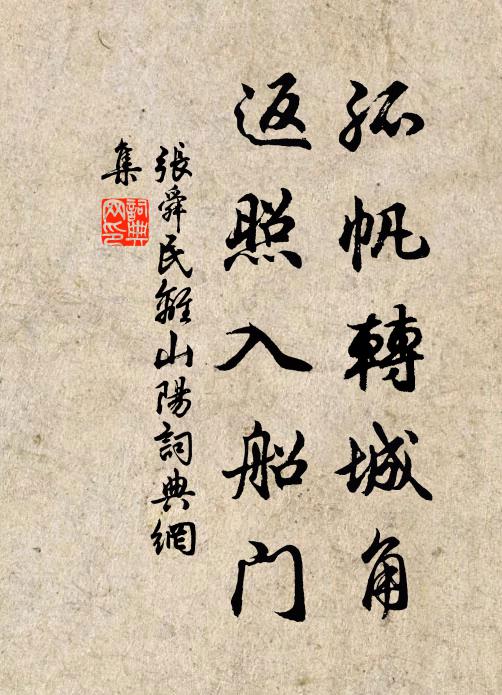 孤帆轉城角
返照入船门
張舜民離山陽詞典網
集
詞典
网印